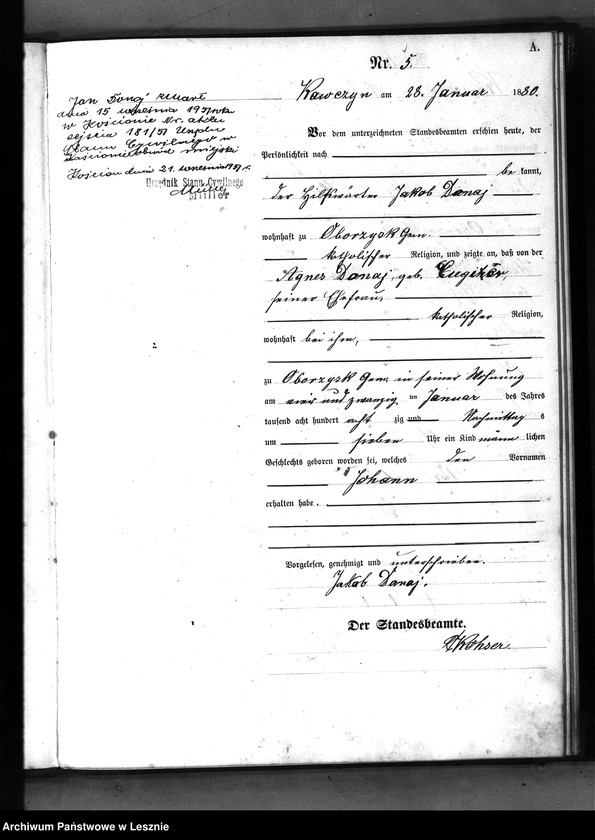 A.
Nr. 5.
Kawczyn am 28. Januar 1880.
Vor dem unterzeichneten Standesbeamten erschien heute, der
Persönlichkeit nach
be kannt,
der Hilfswärter Jakob Danaj
wohnhaft zu Oborzysk Gem.
katholischer Religion, und zeigte an, daß von der
Agnes Danaj, geb.
seiner Ehefrau,
katholischer Religion,
wohnhaft bei ihm,
zu Oborzysk Gem. in seiner Wohnung
am vier und zwanzig ten Januar des Jahres
tausend acht hundert acht zig und Nachmittag s
um sieben Uhr ein Kind männ lichen
Geschlechts geboren worden sei, welches den Vornamen
Johann
erhalten habe.
Vorgelesen, genehmigt und unterschrieben.
Jakob Danaj.
Der Standesbeamte.
Jan zmarł
dnia 15 września 1957 roku
w Kościanie Nr. aktu
zejścia 181/57 Urzędu
Stanu Cywilnego w
Kościanie miejski
Kościan dnia 21. września 1957 r.
Urzędnik Stanu Cywilnego
Archiwum Państwowe w Lesznie